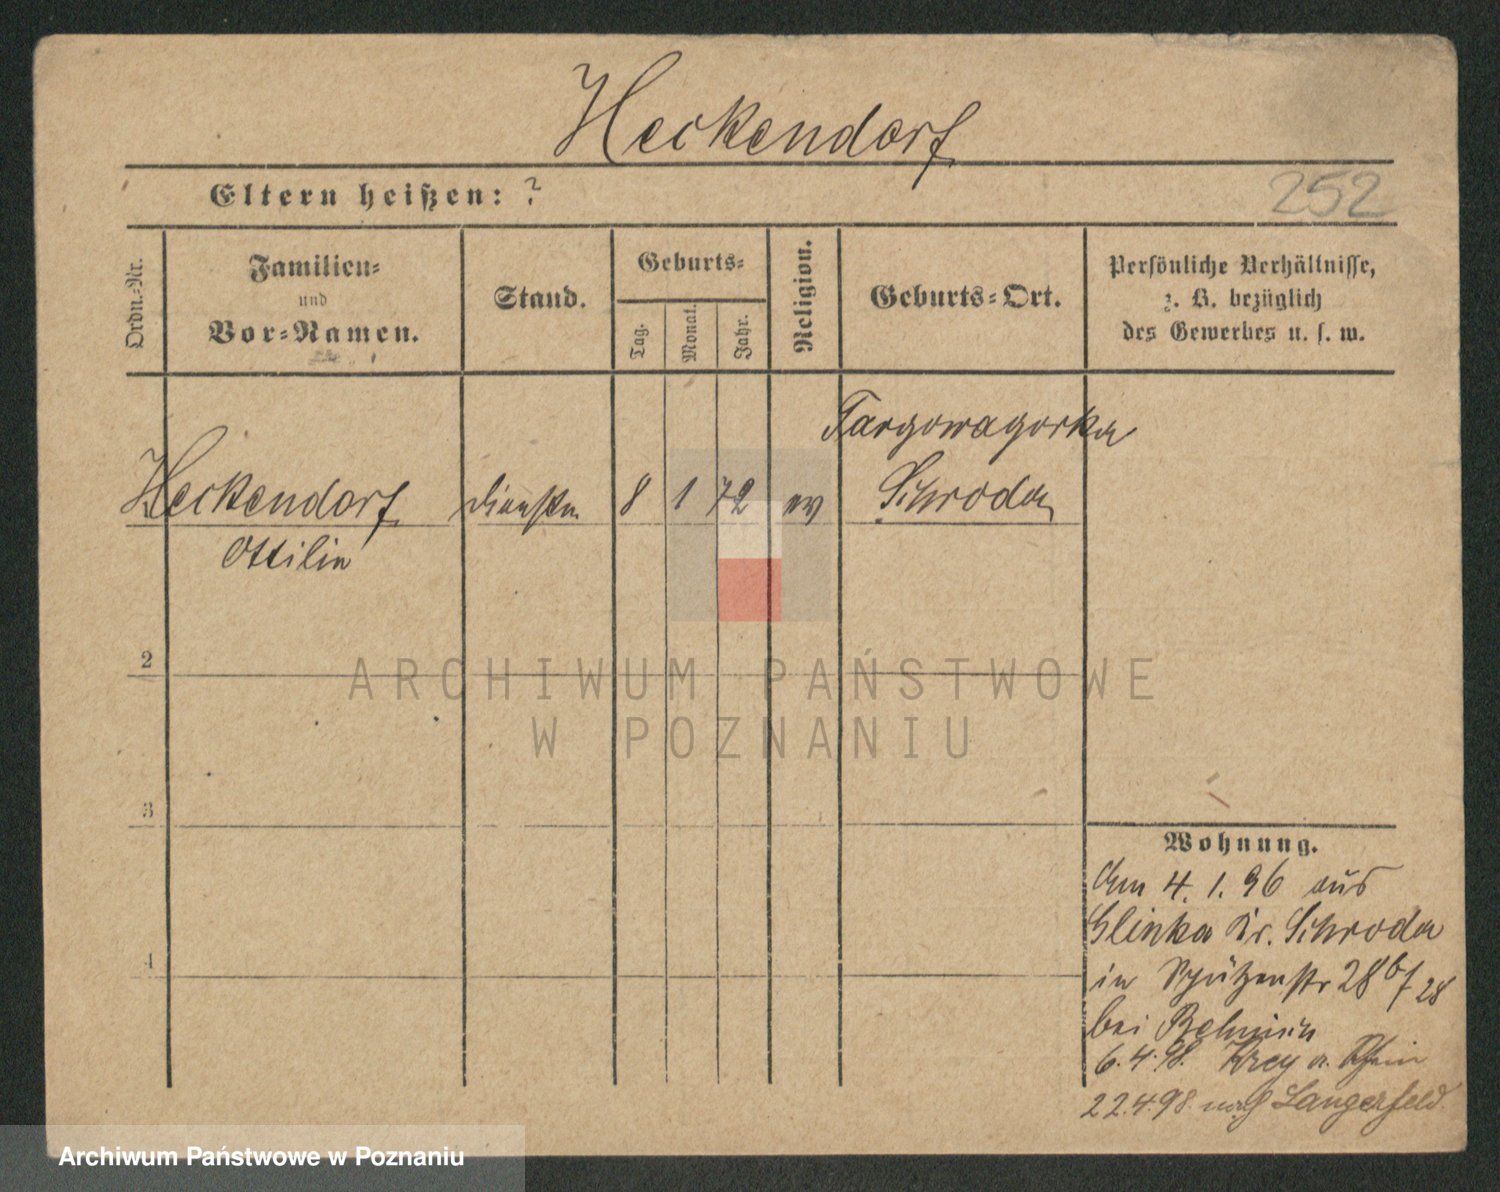 Heckendorf
Eltern heißen: ?
252
Ordn.-Nr.
Familien-
und
Vor-Namen.
Stand.
Geburts-
Tag.
Monat.
Jahr.
Religion.
Geburts-Ort.
Persönliche Verhältnisse,
z. B. bezüglich
des Gewerbes u. s. w.
Targowagorka
Heckendorf 8 1 72 ev Schroda
Ottilie
2
3
4
ARCHIWUM PAŃSTWOWE
W POZNANIU
Wohnung.
Am 4. 1. 96 aus
Glinka Kr. Schroda
in Schützenstr 28
bei
6.4.98. a. Rhein
22.4.98. nach Langerfeld.
Archiwum Państwowe w Poznaniu